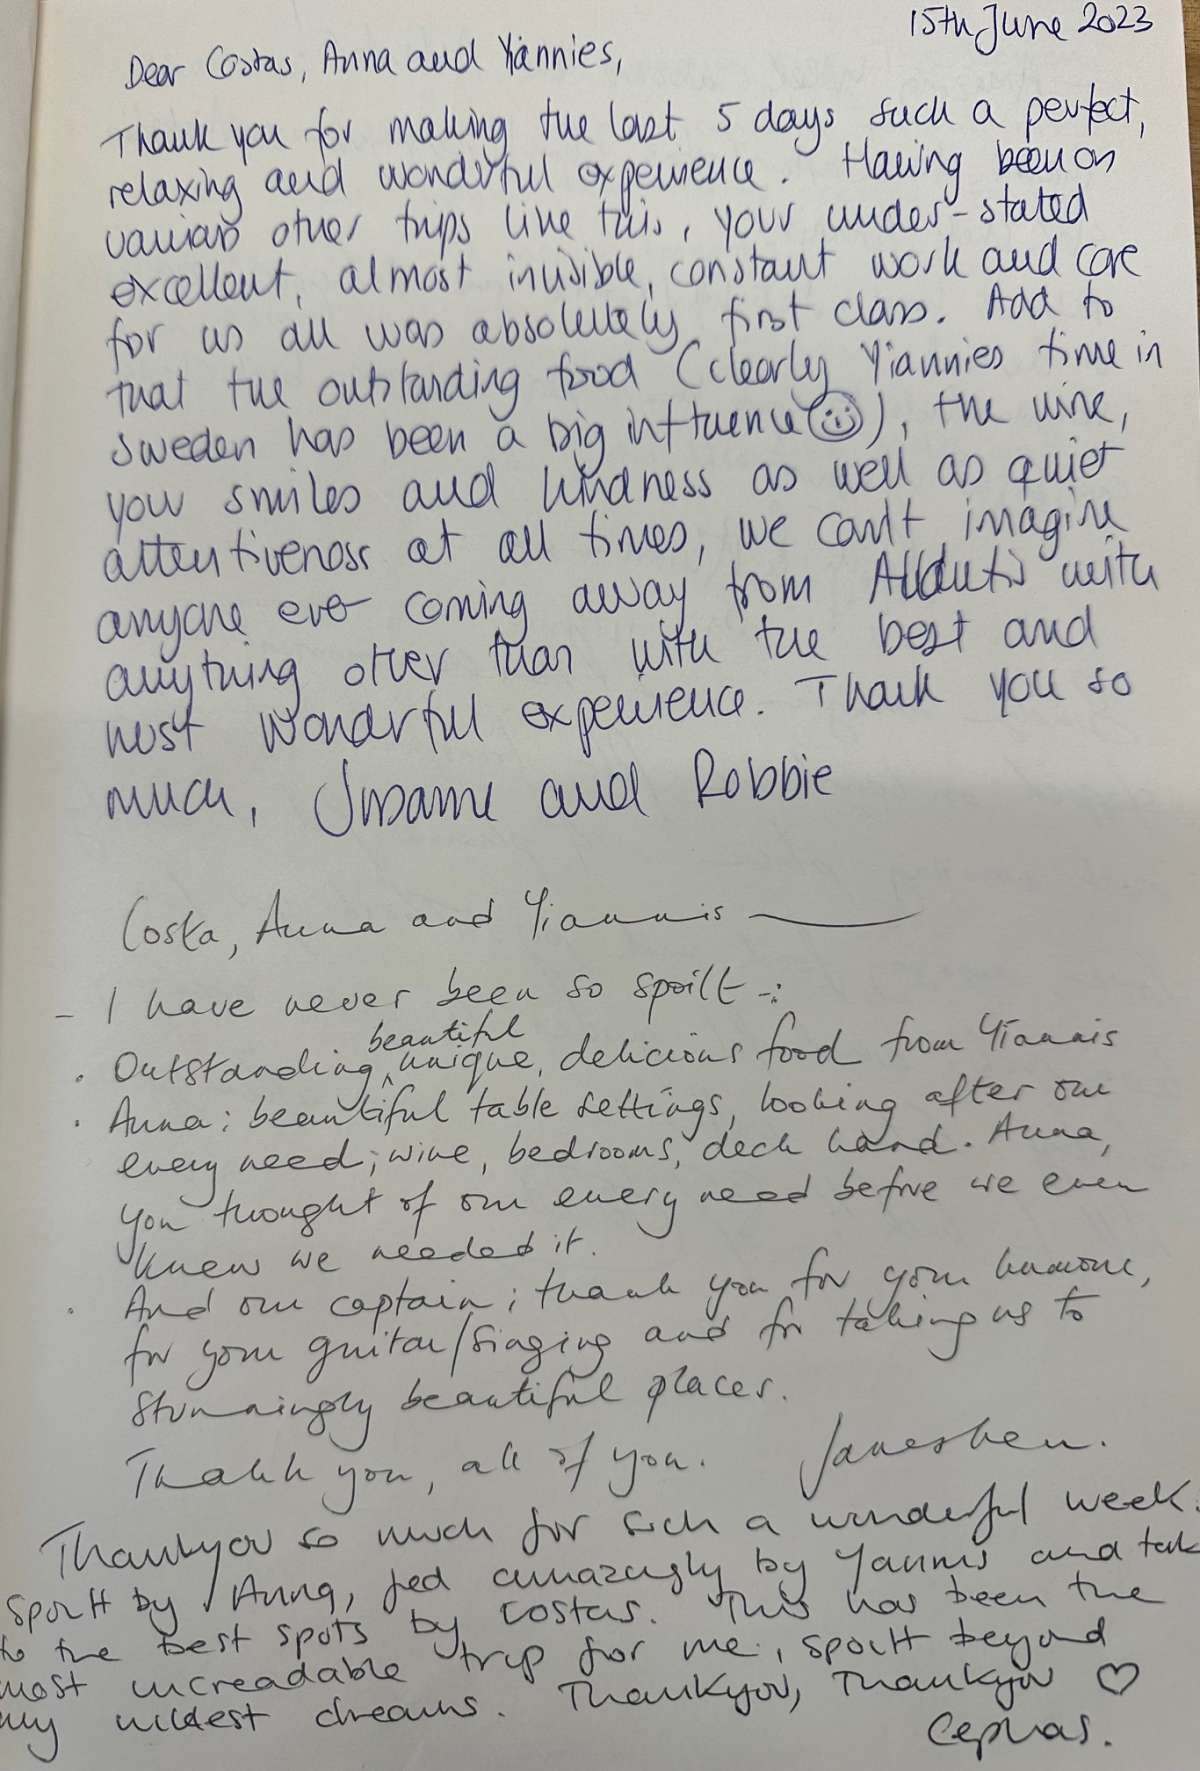 15th June 2023
Dear Costas, Anna and Yiannies,
Thank you for making the last 5 days such a perfect,
relaxing and wonderful experience. Having been on
various other trips like this, your under-stated
excellent, almost invisible, constant work and care
for us all was absolutely first class. Add to
that the outstanding food (clearly Yiannies time in
Sweden has been a big influence ☺), the wine,
your smiles and kindness as well as quiet
attentiveness at all times, we can't imagine
anyone ever coming away from with
anything other than with the best and
most wonderful experience. Thank you so
much, and Robbie
Costa, Anna and Yiannis
- I have never been so spoilt -:
beautiful
. Outstanding, ^ unique, delicious food from Yiannis
. Anna: beautiful table settings, looking after our
every need; wine, bedrooms, deck hand. Anna,
you thought of our every need before we even
knew we needed it.
. And our captain; thank you for your humour,
for your guitar/singing and for taking us to
stunningly beautiful places.
Thank you, all of you.
Thankyou so much for such a wonderful week.
Spoilt by Anna, fed amazingly by Yannis and
to the best spots by Costas. This has been the
most increadable trip for me, spoilt beyond
my wildest dreams. Thankyou, Thankyou ♡
Cephas.